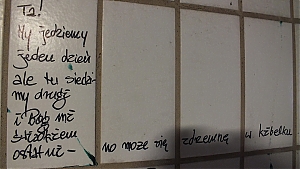 Ta!
My jedziemy
jeden dzień
ale tu siedzi-
my drugi
i Bóg mi
świadkiem
ostatni -
no może się zdrzemnę w kibelku